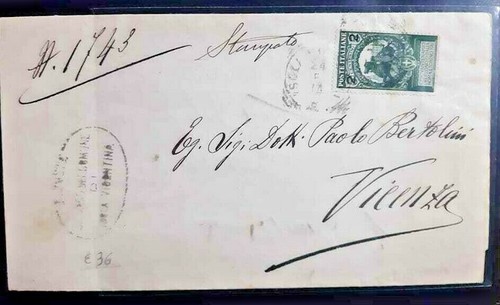 N. 1743
Stampato
POSTE ITALIANE
2 2
24
13
Eg. Sig. Dott. Paolo Bertolini
Vicenza
VICENTINA
€ 36